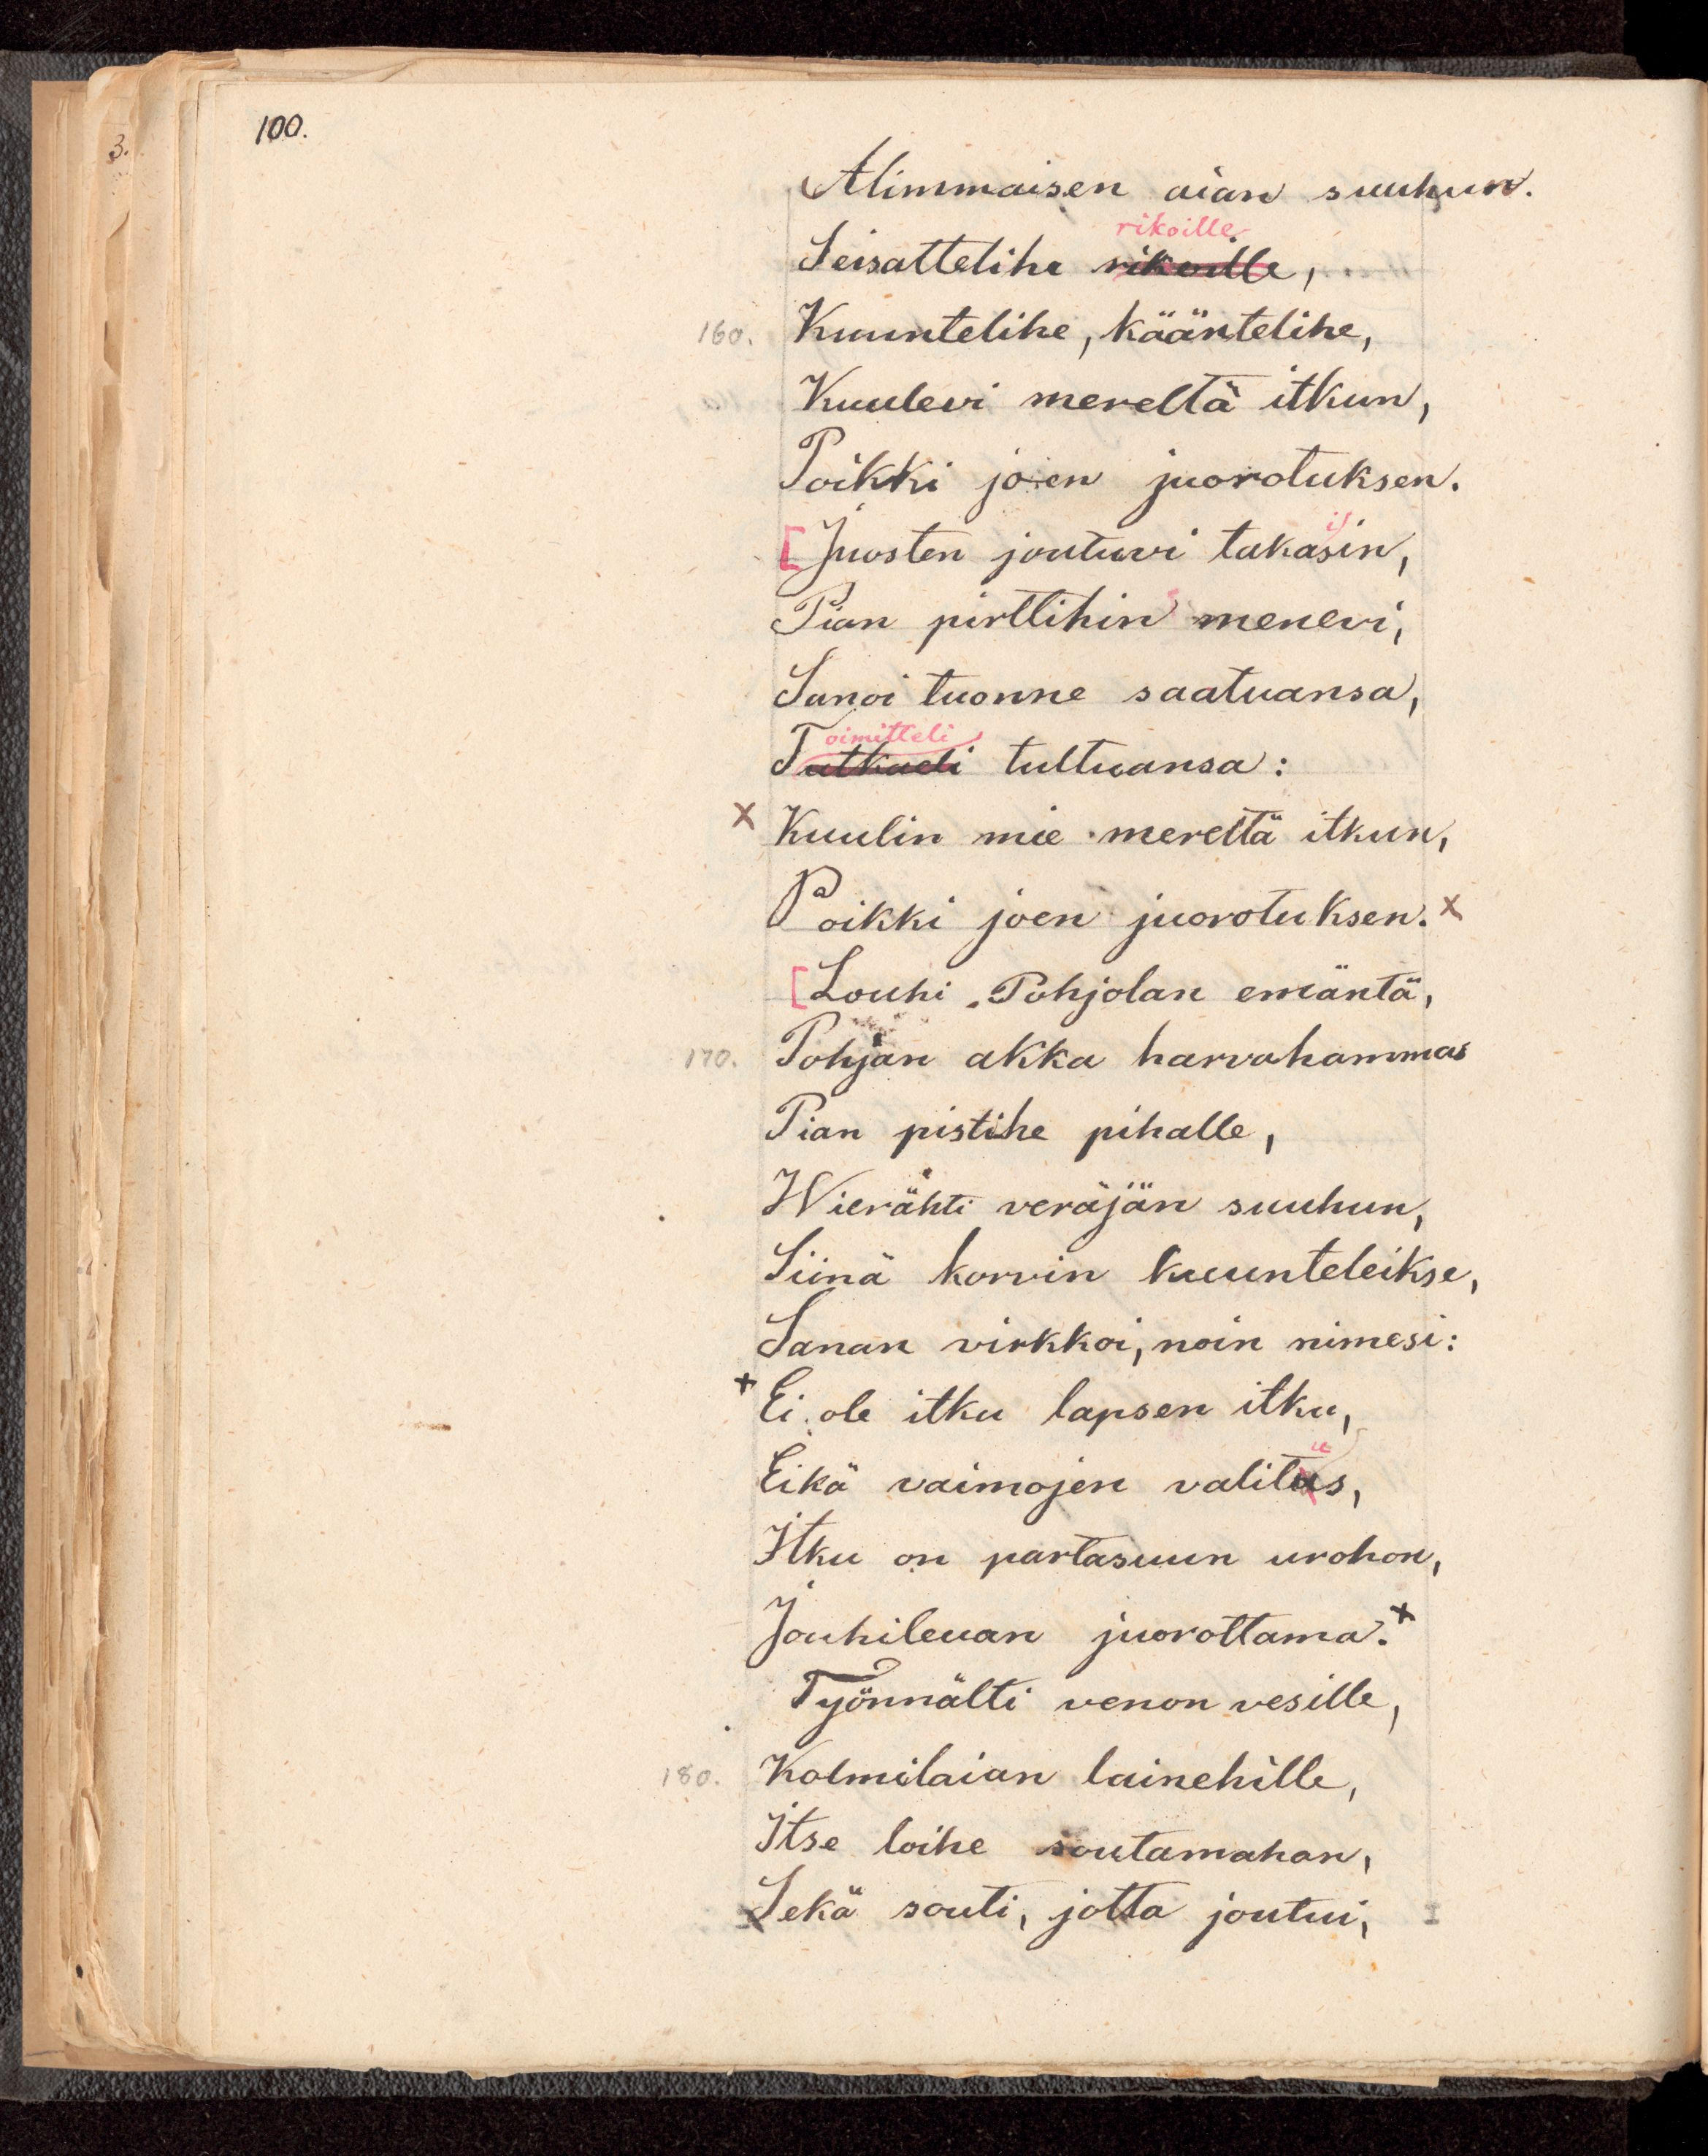 100.
3.
Alimmaisen aian suuhun.
rikoille
Seisattelihe rikoille,
160. Kuuntelihe, kääntelihe,
Kuulevi mereltä itkun,
Poikki joen juorotuksen.
is
[Juosten joutuvi takasin,
Pian pirttihin menevi,
Sanoi tuonne saatuansa,
oimitteli
Tutkaeli tultuansa:
x Kuulin mie mereltä itkun,
Poikki joen juorotuksen. x
[Louhi Pohjolan emäntä,
170. Pohjan akka harvahammas
Pian pistihe pihalle,
Wierähti veräjän suuhun,
Siinä korvin kuunteleikse,
Sanan virkkoi, noin nimesi:
+ Ei ole itku lapsen itku,
u
Eikä vaimojen valitas,
Itku on partasuun urohon,
Jouhileuan juorottama. +
Työnnälti venon vesille,
180. Kolmilaian lainehille,
Itse loihe soutamahan,
Sekä souti, jotta joutui,